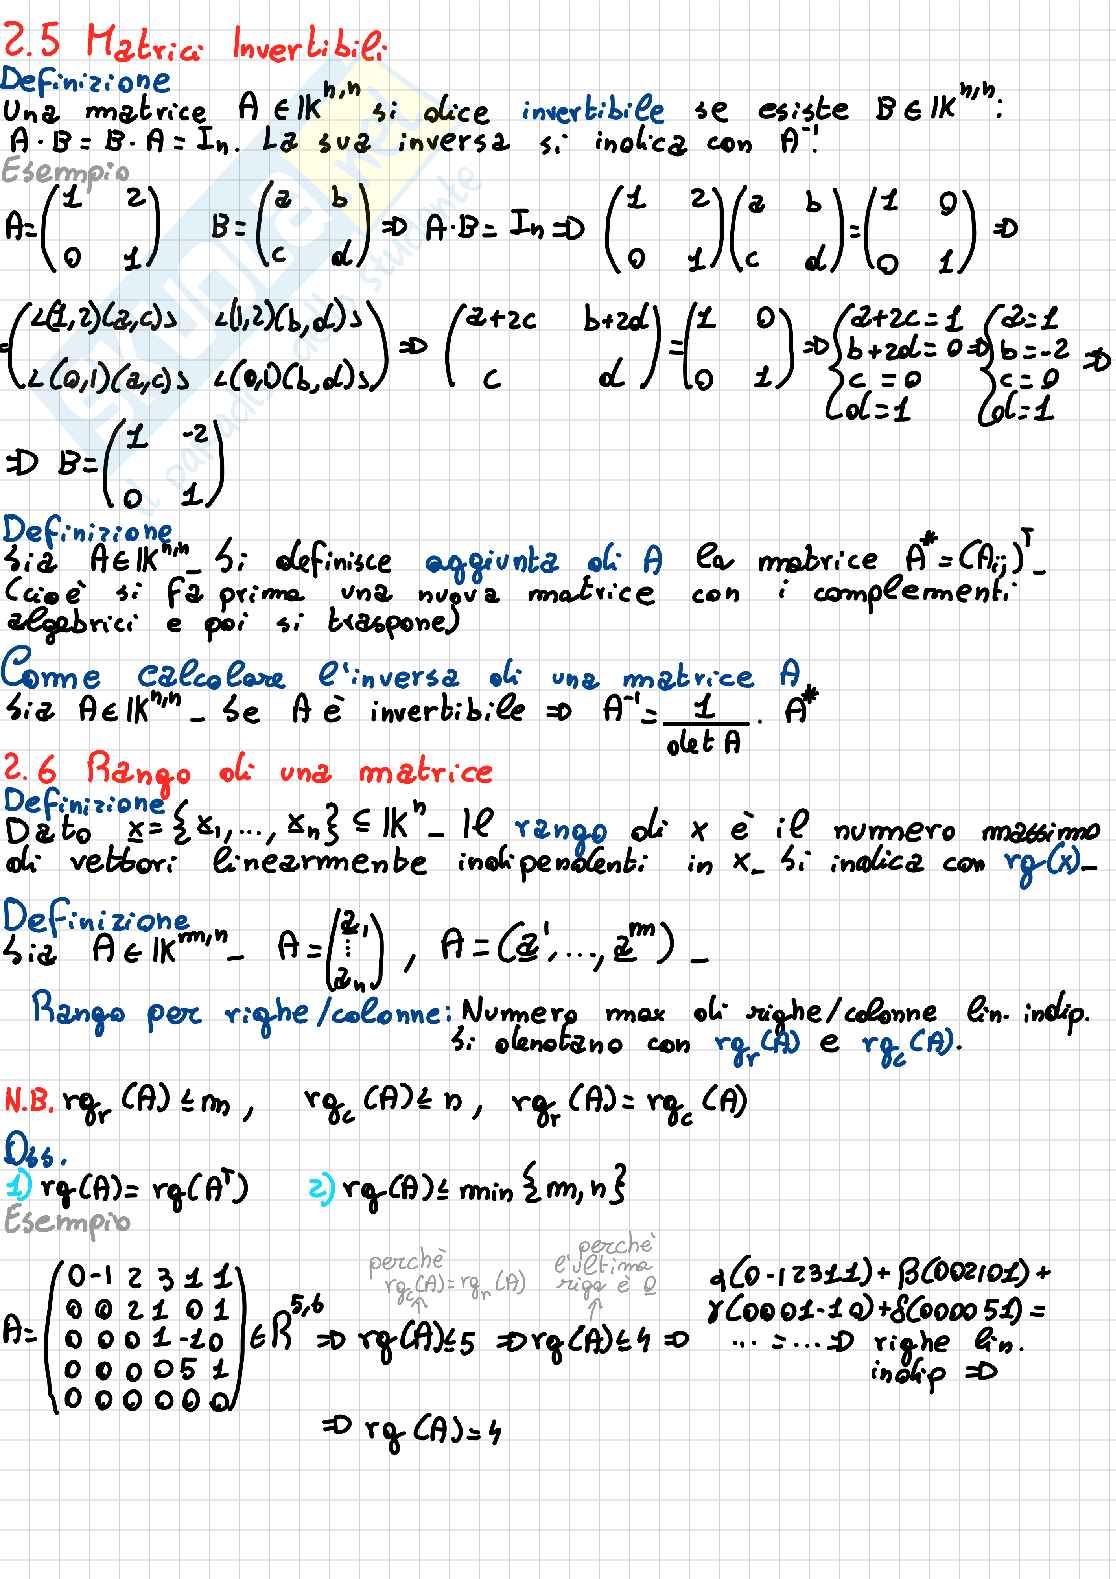 2.5 Matrici Invertibili
Definizione
Una matrice A ∈ IK^n,n si dice invertibile se esiste B ∈ IK^n,n:
A · B = B · A = In. La sua inversa si indica con A⁻¹.
Esempio
A = (1 2 / 0 1) B = (a b / c d) ⇒ A·B = In ⇒ (1 2 / 0 1)(a b / c d) = (1 0 / 0 1) ⇒
= (<(1,2)(a,c)> <(1,2)(b,d)> / <(0,1)(a,c)> <(0,1)(b,d)>) ⇒ (a+2c b+2d / c d) = (1 0 / 0 1) ⇒ {a+2c=1 / b+2d=0 / c=0 / d=1 ⇒ {a=1 / b=-2 / c=0 / d=1 ⇒
⇒ B = (1 -2 / 0 1)
Definizione
Sia A ∈ IK^n,n_ Si definisce aggiunta di A la matrice A* = (Aij)^T_
(cioè si fa prima una nuova matrice con i complementi
algebrici e poi si traspone)
Come calcolare l'inversa di una matrice A
Sia A ∈ IK^n,n_ Se A è invertibile ⇒ A⁻¹ = 1/det A · A*
2.6 Rango di una matrice
Definizione
Dato x = {x₁, ..., xn} ⊆ IK^n_ Il rango di x è il numero massimo
di vettori linearmente indipendenti in x_ Si indica con rg(x)_
Definizione
Sia A ∈ IK^m,n_ A = (a₁ / ⋮ / an), A = (a¹, ..., a^m)_
Rango per righe/colonne: Numero max di righe/colonne lin. indip.
Si denotano con rgr(A) e rgc(A).
N.B. rgr(A) ≤ m, rgc(A) ≤ n, rgr(A) = rgc(A)
Oss.
1) rg(A) = rg(A^T) 2) rg(A) ≤ min {m, n}
Esempio
perchè rgc(A) = rgr(A)
perchè l'ultima riga è 0
A = (0 -1 2 3 1 1 / 0 0 2 1 0 1 / 0 0 0 1 -1 0 / 0 0 0 0 5 1 / 0 0 0 0 0 0) ∈ R^5,6 ⇒ rg(A) ≤ 5 ⇒ rg(A) ≤ 4 ⇒
α(0-12311) + β(002101) +
γ(0001-10) + δ(000051) =
... = ... ⇒ righe lin.
indip ⇒
⇒ rg(A) = 4
skuola.net
il paradiso dello studente